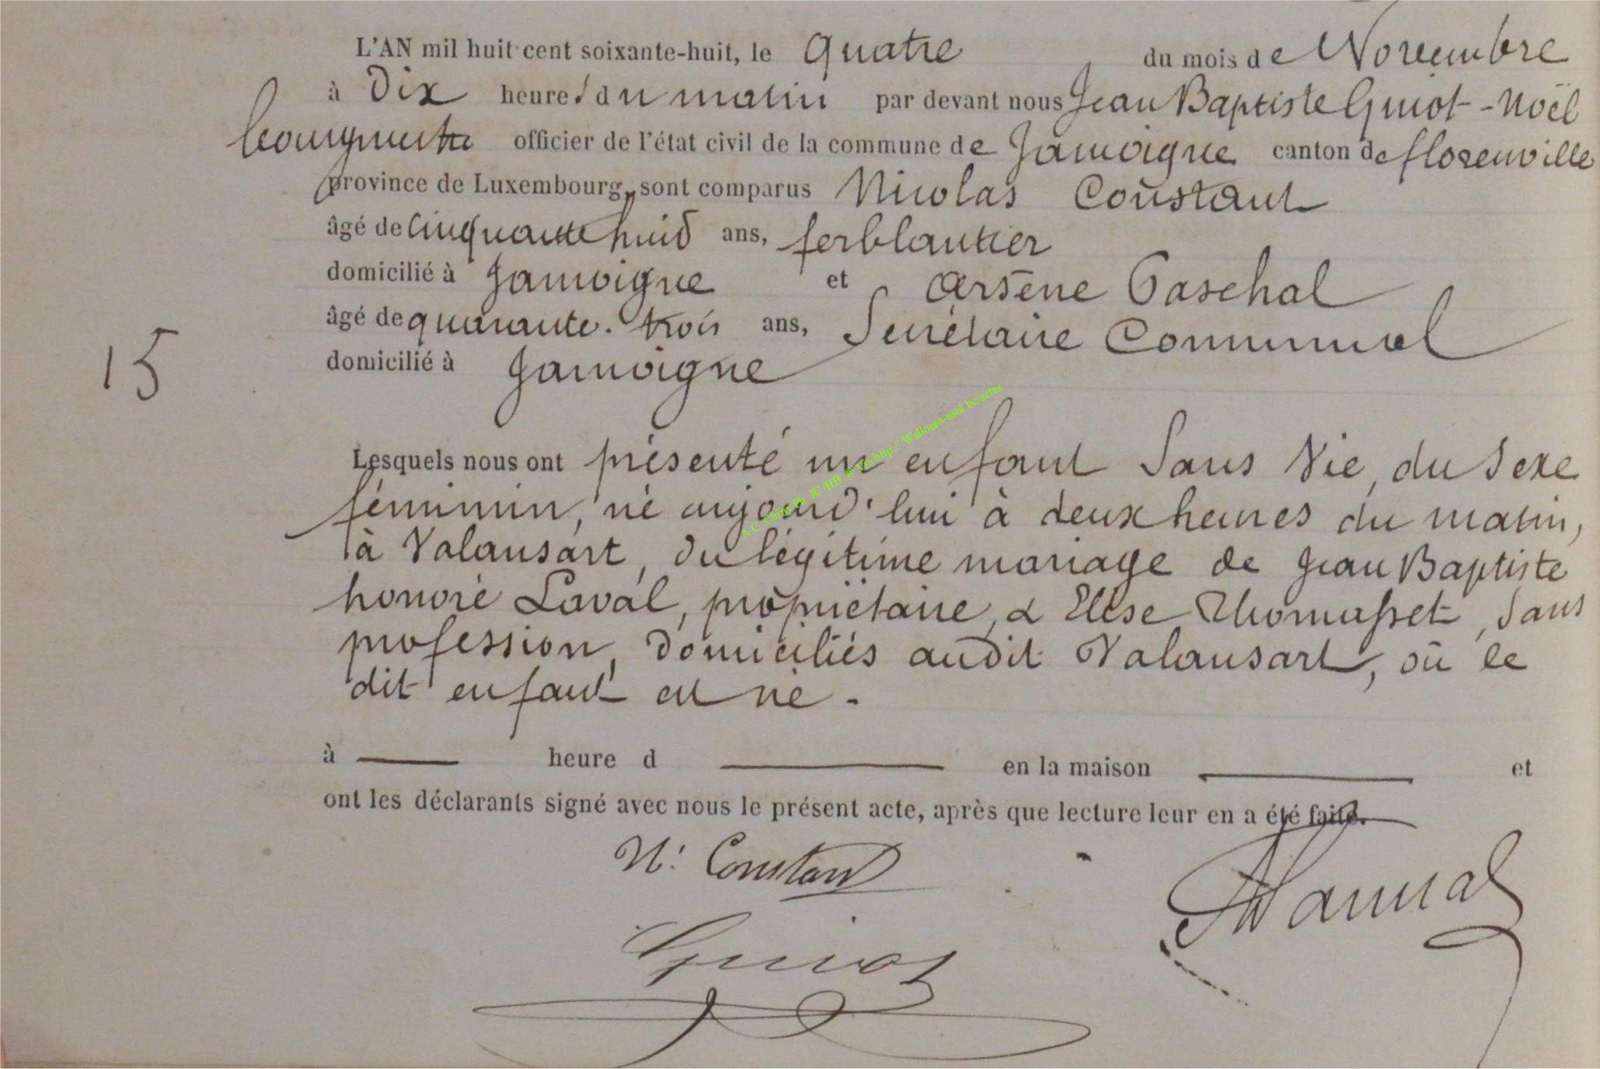 L'AN mil huit cent soixante-huit, le quatre du mois de Novembre
à Dix heures du matin par devant nous Jean Baptiste Guiot-Noël
officier de l'état civil de la commune de Jamoigne canton de florenville
province de Luxembourg, sont comparus Nicolas Constant
âgé de cinquante huit ans, ferblantier
domicilié à Jamoigne et Arsène Paschal
âgé de quarante-trois ans, Secrétaire Communal
domicilié à Jamoigne
15
Lesquels nous ont présenté un enfant Sans Vie, du Sexe
féminin, né aujourd'hui à deux heures du matin,
à Valansart, du légitime mariage de Jean Baptiste
honoré Laval, propriétaire, & Elise Thomasset, Sans
profession, Domiciliés audit Valansart, où le
dit enfant est né.
à heure d en la maison et
ont les déclarants signé avec nous le présent acte, après que lecture leur en a été faite.
N. Constant
Guiot